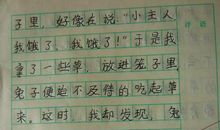 评语
子里，好像在说“小主人
我饿了，我饿了！”于是我
拿了一些草，放进笼子里
兔子便迫不及待的吃起草
来。这时，我却发现，兔